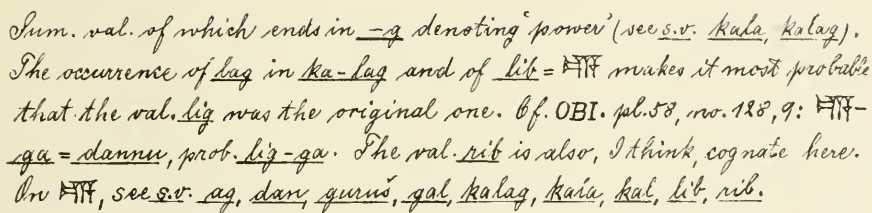 Sum. val. of which ends in -g denoting 'power' (see s.v. kala, kalag).
The occurrence of lag in ka-lag and of lib = 𒆗 makes it most probable
that the val. lig was the original one. Cf. OBI. pl. 58, no. 128, 9: 𒆗-
ga = dannu, prob. lig-ga. The val. rib is also, I think, cognate here.
On 𒆗, see s.v. ag, dan, guruš, gal, kalag, kala, kal, lib, rib.